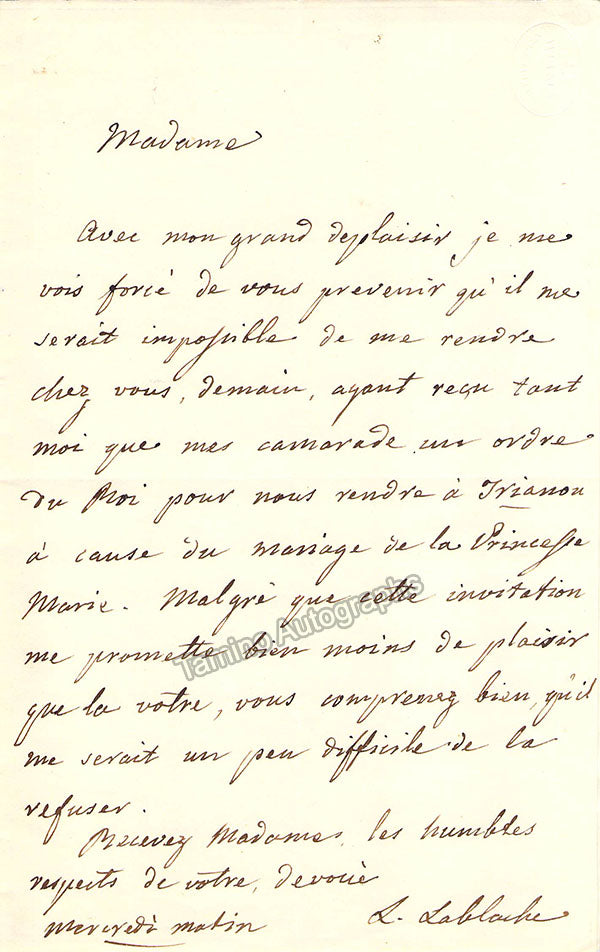 Madame
Avec mon grand deplaisir je me
vois forcé de vous prevenir qu'il me
serait impossible de me rendre
chez vous, demain, ayant reçu tant
moi que mes camarade un ordre
du Roi pour nous rendre à Trianon
à cause du mariage de la Princesse
Marie. Malgrè que cette invitation
me promette bien moins de plaisir
que la votre, vous comprenez bien, qu'il
me serait un peu difficile de la
refuser.
Recevez Madame, les humbles
respects de votre, devoué
Mercredi matin L. Lablache
Taming Autographs